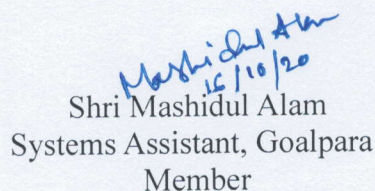 Mashidul Alam
16/10/20
Shri Mashidul Alam
Systems Assistant, Goalpara
Member